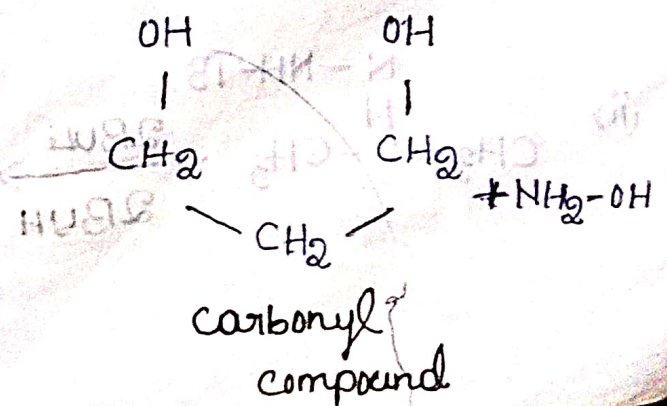 OH OH
CH2 CH2
+NH2-OH
CH2
carbonyl
compound